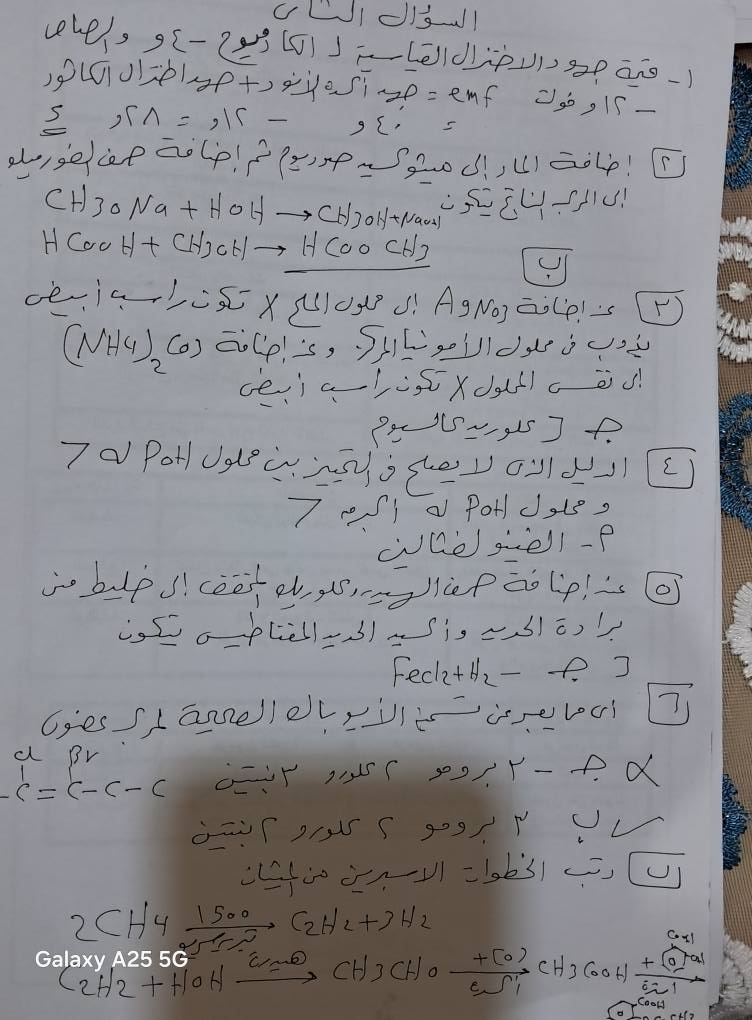 السؤال الثاني
١- قيمة جهود الاختزال القياسية ل الكادميوم -٤,٠ والرصاص
-١٢,٠ فولت emf = جهد أكسدة الأنود + جهد اختزال الكاثود
= ٤,٠ - ١٢,٠ = ٢٨,٠
٢ إضافة الماء إلى ميثوكسيد صوديوم ثم إضافة حمض الفورميك
إلى المركب الناتج يتكون
CH3ONa + HOH → CH3OH + NaOH
HCOOH + CH3OH → HCOOCH3
ب
٣ عند إضافة AgNO3 إلى محلول الملح X تكون راسب أبيض
يذوب في محلول الأمونيا المركز وعند إضافة (NH4)2CO3
إلى نفس المحلول X تكون راسب أبيض
ج [ كلوريد كالسيوم
٤ الدليل الذي لا يصلح في التمييز بين محلول POH له 7
ومحلول POH له أكبر من 7
P- الفينولفثالين
٥ عند إضافة حمض الهيدروكلوريك المخفف إلى خليط من
برادة الحديد وأكسيد الحديد المغناطيسي يتكون
[ ج - FeCl2 + H2
٦ أي مما يعبر عن تسمية الأيوباك الصحيحة لمركب عضوي
X ج - ٣ برومو ٢ كلورو ٣ بنتين
Cl Br
- C = C - C - C
ب ٣ برومو ٢ كلورو ٢ بنتين
٧ رتب الخطوات الاسبرين من الميثان
2CH4 1500 تبريد سريع → C2H2 + 3H2
C2H2 + HOH هيدرة → CH3CHO +[O] أكسدة → CH3COOH + COOH OH أسترة →
COOH